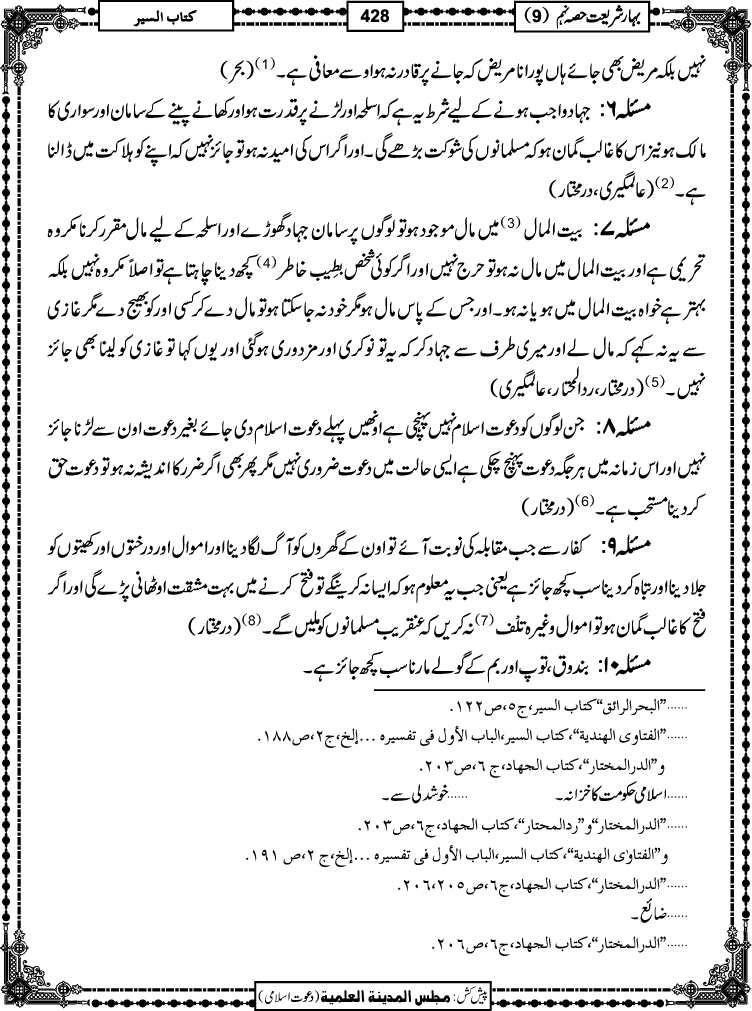 بہار شریعت حصہ نہم (9)
428
کتاب السیر
نہیں بلکہ مریض بھی جائے ہاں پورانا مریض کہ جانے پر قادر نہ ہو اوسے معافی ہے۔(1) (بحر)
مسئلہ ۶: جہاد واجب ہونے کے لیے شرط یہ ہے کہ اسلحہ اور لڑنے پر قدرت ہو اور کھانے پینے کے سامان اور سواری کا
مالک ہو نیز اس کا غالب گمان ہو کہ مسلمانوں کی شوکت بڑھے گی۔ اور اگر اس کی امید نہ ہو تو جائز نہیں کہ اپنے کو ہلاکت میں ڈالنا
ہے۔(2) (عالمگیری، درمختار)
مسئلہ ۷: بیت المال (3) میں مال موجود ہو تو لوگوں پر سامان جہاد گھوڑے اور اسلحہ کے لیے مال مقرر کرنا مکروہ
تحریمی ہے اور بیت المال میں مال نہ ہو تو حرج نہیں اور اگر کوئی شخص بطِیب خاطر (4) کچھ دینا چاہتا ہے تو اصلاً مکروہ نہیں بلکہ
بہتر ہے خواہ بیت المال میں ہو یا نہ ہو۔ اور جس کے پاس مال ہو مگر خود نہ جا سکتا ہو تو مال دے کر کسی اور کو بھیج دے مگر غازی
سے یہ نہ کہے کہ مال لے اور میری طرف سے جہاد کر کہ یہ تو نوکری اور مزدوری ہوگئی اور یوں کہا تو غازی کو لینا بھی جائز
نہیں۔(5) (درمختار، ردالمحتار، عالمگیری)
مسئلہ ۸: جن لوگوں کو دعوت اسلام نہیں پہنچی ہے اونھیں پہلے دعوت اسلام دی جائے بغیر دعوت اون سے لڑنا جائز
نہیں اور اس زمانہ میں ہر جگہ دعوت پہنچ چکی ہے ایسی حالت میں دعوت ضروری نہیں مگر پھر بھی اگر ضرر کا اندیشہ نہ ہو تو دعوت حق
کر دینا مستحب ہے۔(6) (درمختار)
مسئلہ ۹: کفار سے جب مقابلہ کی نوبت آئے تو اون کے گھروں کو آگ لگا دینا اور اموال اور درختوں اور کھیتوں کو
جلا دینا اور تباہ کر دینا سب کچھ جائز ہے یعنی جب یہ معلوم ہو کہ ایسا نہ کرینگے تو فتح کرنے میں بہت مشقت اوٹھانی پڑے گی اور اگر
فتح کا غالب گمان ہو تو اموال وغیرہ تلف (7) نہ کریں کہ عنقریب مسلمانوں کو ملیں گے۔(8) (درمختار)
مسئلہ ۱۰: بندوق، توپ اور بم کے گولے مارنا سب کچھ جائز ہے۔
......”البحر الرائق“ کتاب السیر، ج٥، ص١٢٢.
......”الفتاوی الهندیة“، کتاب السیر، الباب الأول فی تفسیره ...إلخ، ج٢، ص١٨٨.
و”الدر المختار“، کتاب الجهاد، ج ٦، ص٢٠٣.
......اسلامی حکومت کا خزانہ۔ ......خوشدلی سے۔
......”الدر المختار“ و”رد المحتار“، کتاب الجهاد، ج٦، ص٢٠٣.
و”الفتاوٰی الهندیة“، کتاب السیر، الباب الأول فی تفسیره ...إلخ، ج ٢، ص ١٩١.
......”الدر المختار“، کتاب الجهاد، ج٦، ص٢٠٥، ٢٠٦.
......ضائع۔
......”الدر المختار“، کتاب الجهاد، ج٦، ص٢٠٦.
پیش کش: مجلس المدینة العلمیة (دعوت اسلامی)